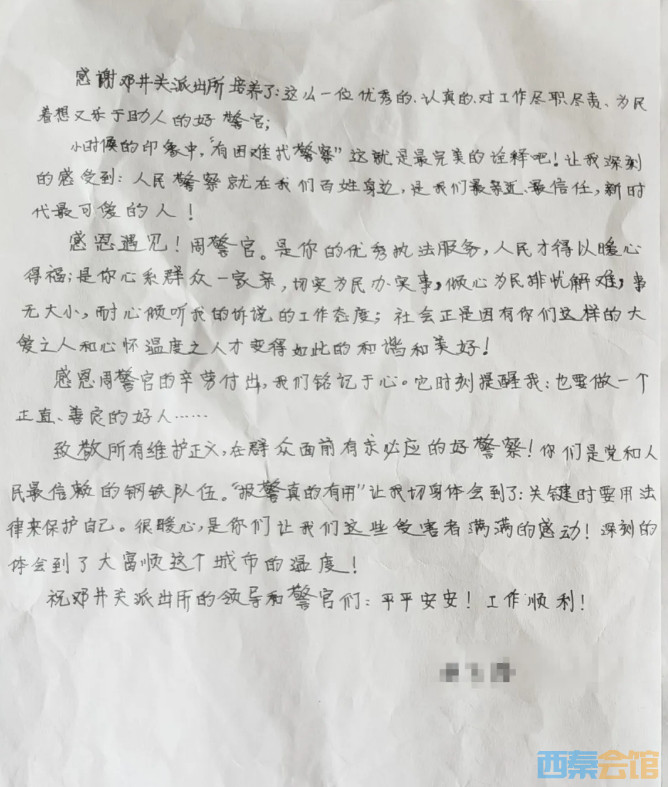 感谢邓井关派出所培养了:这么一位优秀的、认真的、对工作尽职尽责、为民
着想又乐于助人的好警官;
小时候的印象中,"有困难找警察"这就是最完美的诠释吧!让我深刻
的感受到:人民警察就在我们百姓身边,是我们最亲近、最信任,新时
代最可爱的人!
感恩遇见!周警官。是你的优秀执法服务,人民才得以暖心
得福;是你心系群众一家亲,切实为民办实事,倾心为民排忧解难,事
无大小,耐心倾听我的诉说的工作态度;社会正是因有你们这样的大
爱之人和心怀温度之人才变得如此的和谐和美好!
感恩周警官的辛劳付出,我们铭记于心。它时刻提醒我:也要做一个
正直、善良的好人……
致敬所有维护正义,在群众面前有求必应的好警察!你们是党和人
民最信赖的钢铁队伍。"报警真的有用"让我切身体会到了:关键时要用法
律来保护自己。很暖心,是你们让我们这些受害者满满的感动!深刻的
体会到了大富顺这个城市的温度!
祝邓井关派出所的领导和警官们:平平安安!工作顺利!
西秦会馆